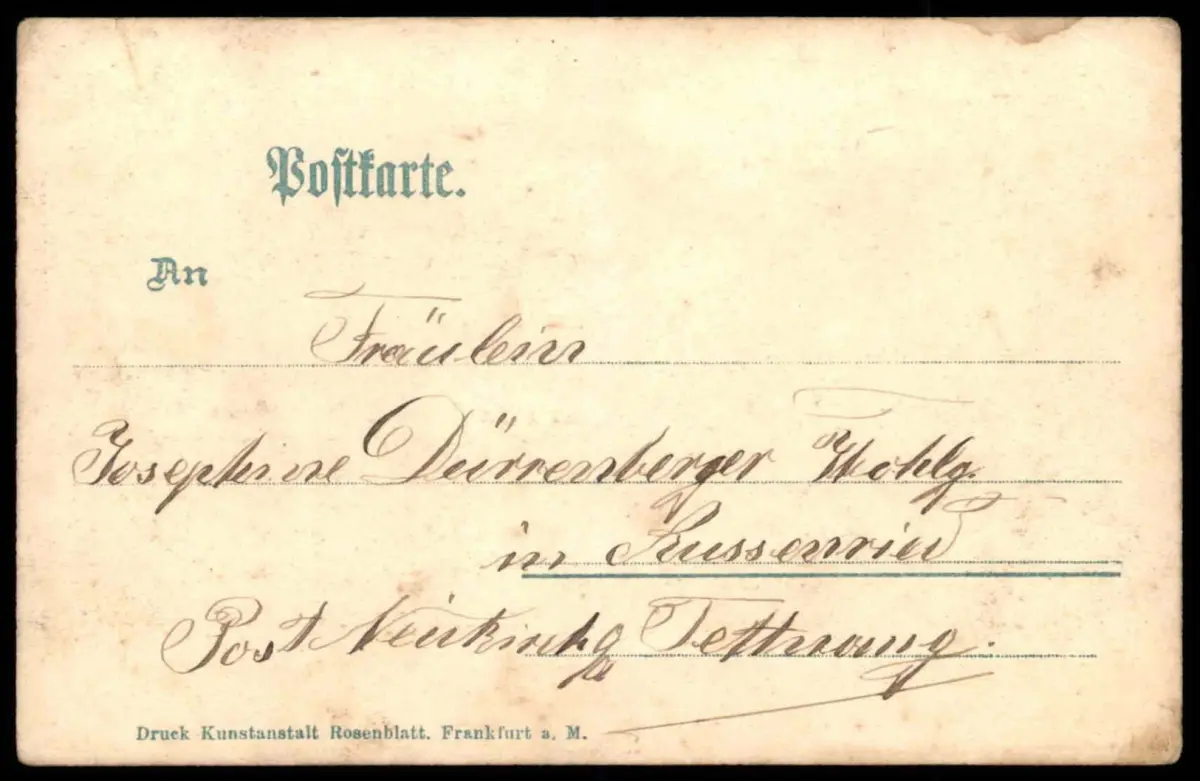 Postkarte.
An
Fräulein
Josephine Dürrenberger Wohlg.
in Russenried
Post Neukirch Tettnang.
Druck Kunstanstalt Rosenblatt. Frankfurt a. M.